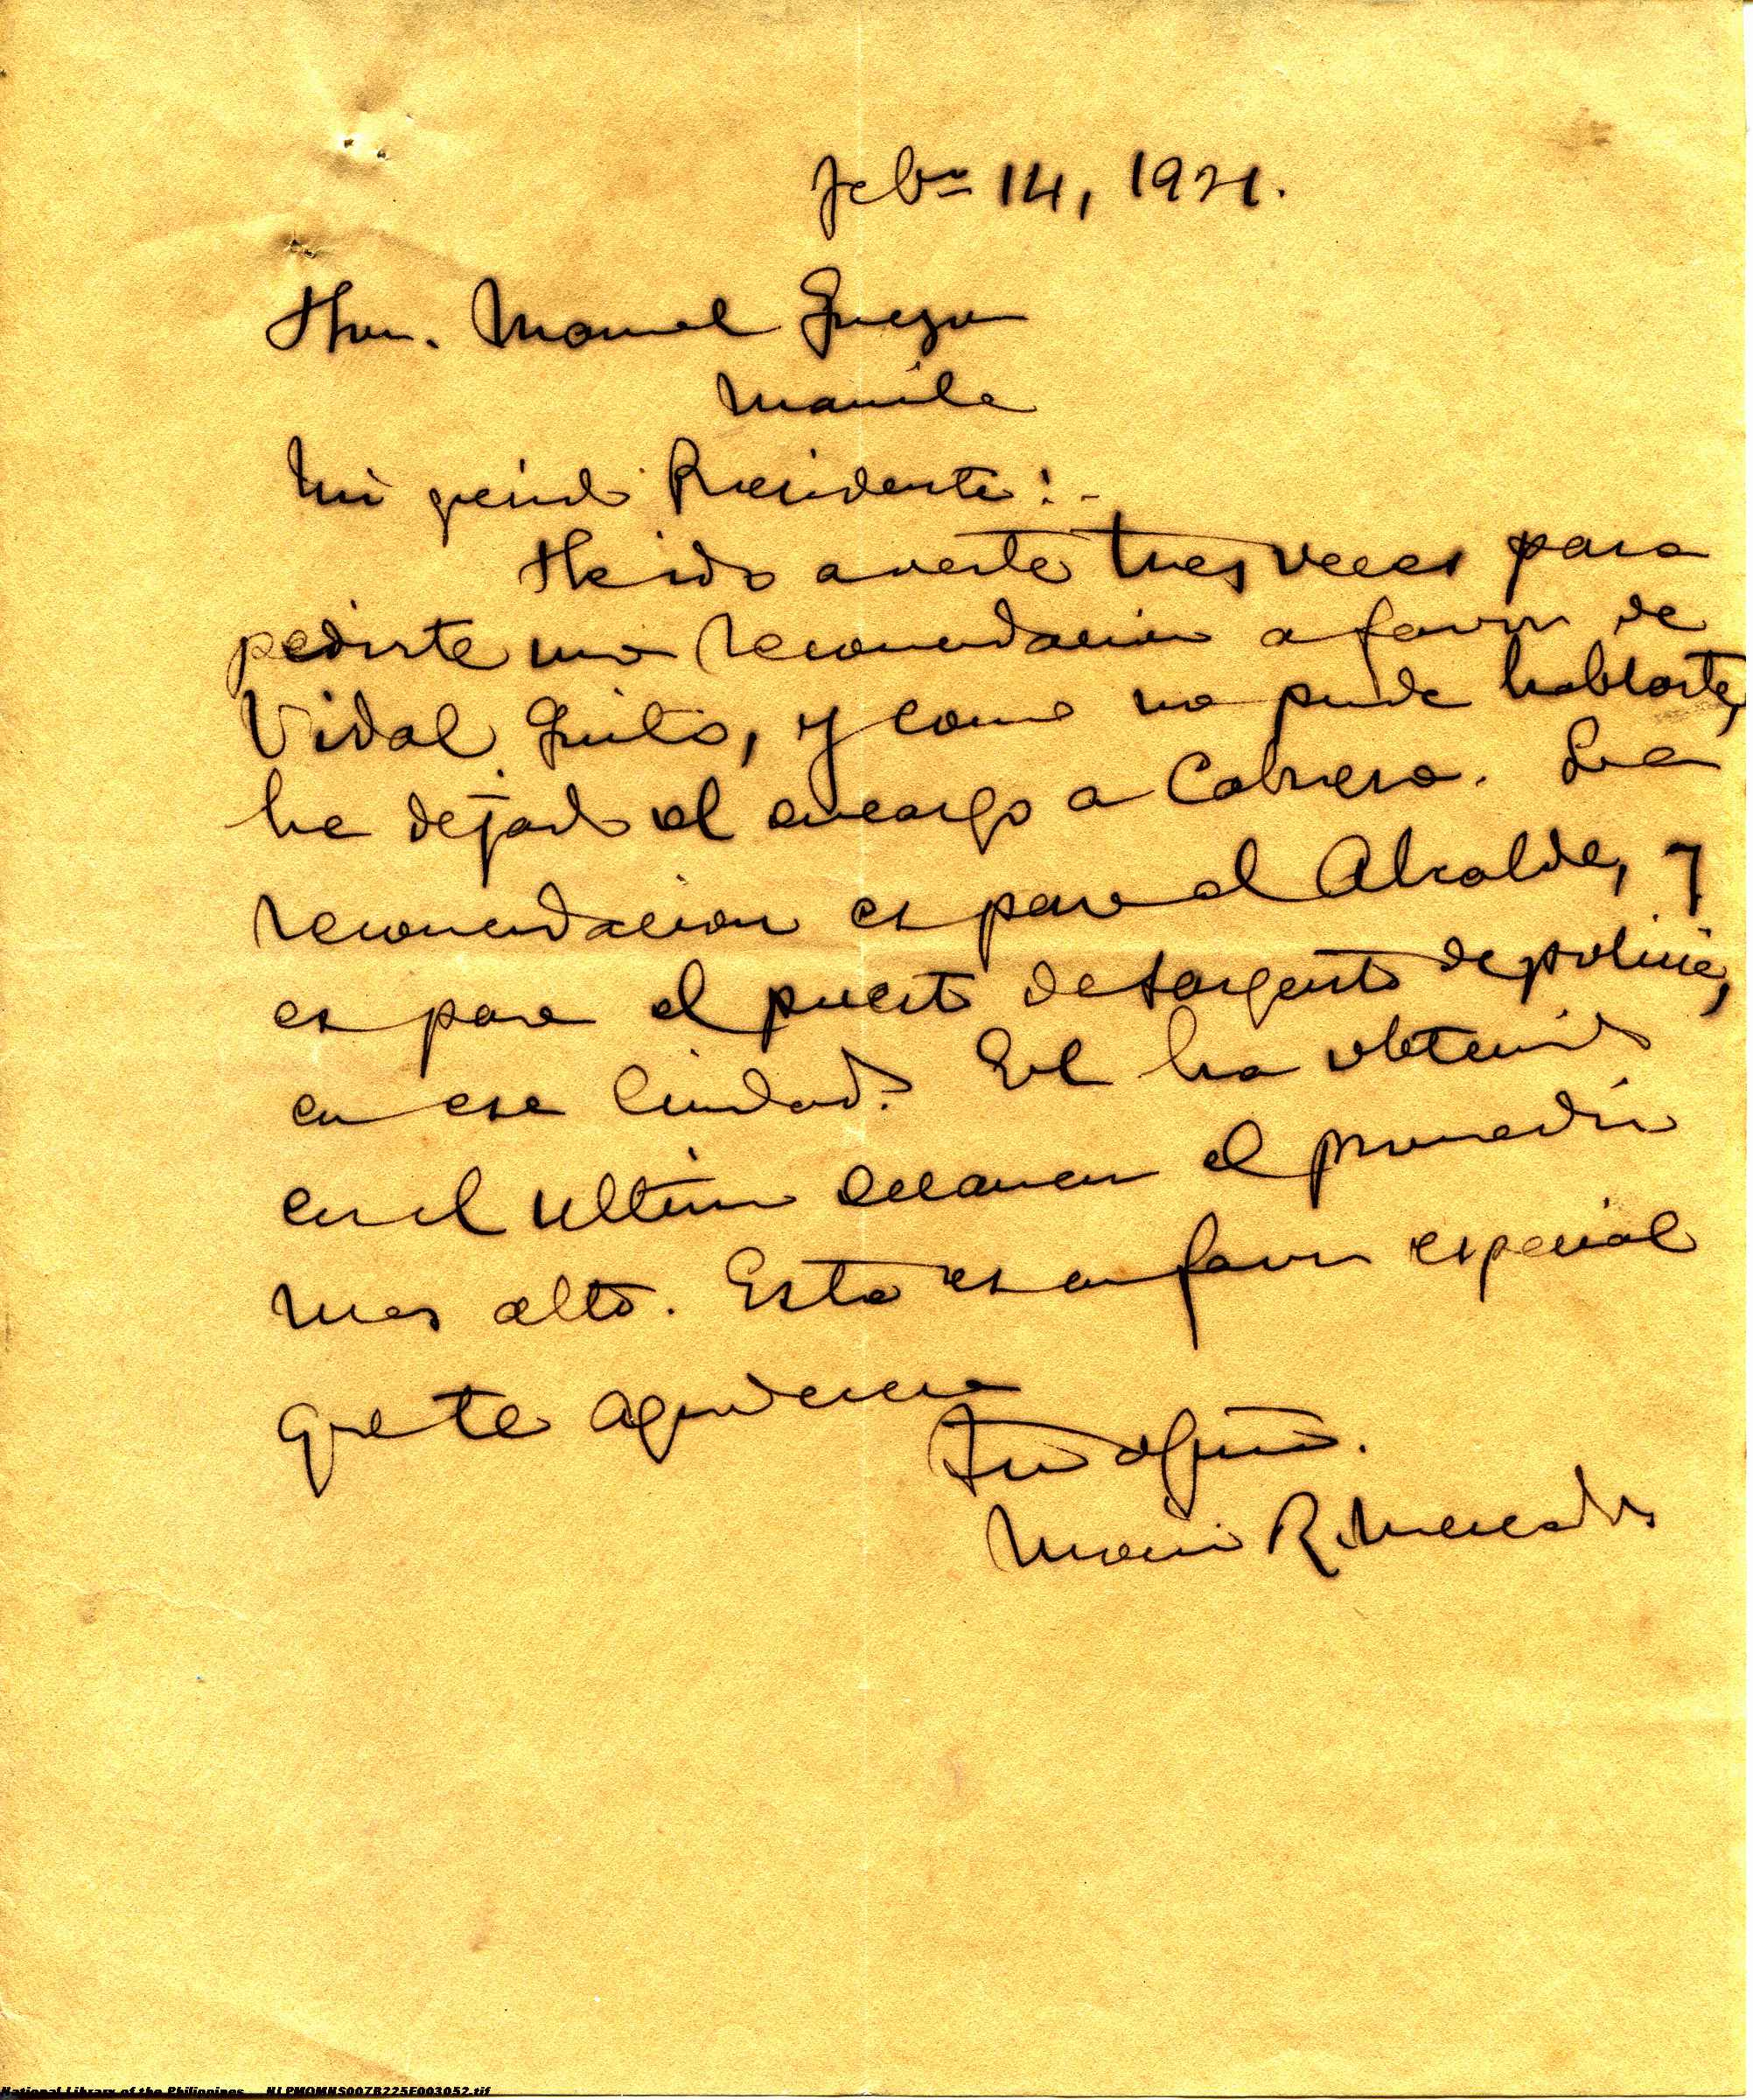 Febro 14, 1921.
Hon. Manuel Quezon
Manila
Mi querido Presidente:-
He ido a verte tres veces para
pedirte una recomendacion a favor de
Vidal Quito, y como no pude hablarte,
he dejado el encargo a Cabrera. La
recomendacion es para el Alcalde, y
es para el puesto de sargento de policia,
en esa Ciudad. El ha obtenido
en el ultimo examen el promedio
mas alto. Este es un favor especial
que te agradecera
Tuo afmo.
R. Mercado
National Library of the Philippines NLPMQMNS007B225F003052.tif